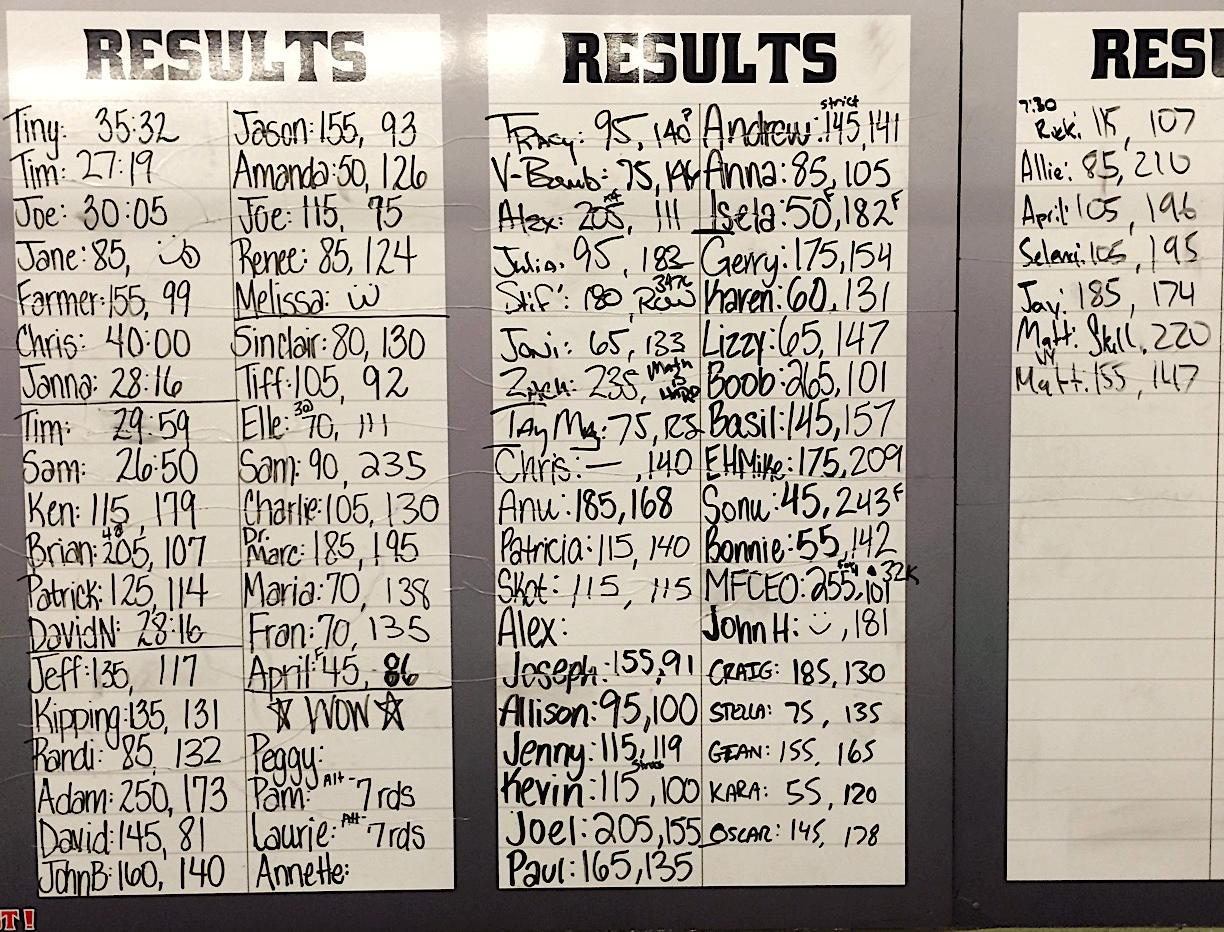 RESULTS
Tiny: 35:32
Tim: 27:19
Joe: 30:05
Jane: 85,
Farmer: 155, 99
Chris: 40:00
Janna: 28:16
Tim: 29:59
Sam: 26:50
Ken: 115, 179
Brian: 205, 107
Patrick: 125, 114
DavidN: 28:16
Jeff: 135, 117
Kipping: 135, 131
Randi: 85, 132
Adam: 250, 173
David: 145, 81
JohnB: 160, 140
Jason: 155, 93
Amanda: 50, 126
Joe: 115, 75
Renee: 85, 124
Melissa:
Sinclair: 80, 130
Tiff: 105, 92
Elle: 70, 111
Sam: 90, 235
Charlie: 105, 130
Dr.
Marc: 185, 195
Maria: 70, 138
Fran: 70, 135
April: F 45, 86
☆ WOW ☆
Peggy:
Pam: Alt- 7 rds
Laurie: Alt- 7 rds
Annette:
RESULTS
Tracy: 95, 140
V-Bomb: 75,
Alex: 205, 111
Julia: 95, 183
Stif': 180, Row
Joni: 65, 133
Zach: 235, Math is HARD
Tay Mg: 75,
Chris: — , 140
Anu: 185, 168
Patricia: 115, 140
Skot: 115, 115
Alex:
Joseph: 155, 91
Allison: 95, 100
Jenny: 115, 119
Kevin: 115, 100
Joel: 205, 155
Paul: 165, 135
strict
Andrew: 145, 141
Anna: 85, 105
Isela: 50F, 182F
Gerry: 175, 154
Karen: 60, 131
Lizzy: 65, 147
Boob: 265, 101
Basil: 145, 157
EHMike: 175, 209
Sonu: 45, 243F
Bonnie: 55, 142
MFCEO: 255, 101 32K
John H: , 181
CRAIG: 185, 130
STELLA: 75, 135
GEAN: 155, 165
KARA: 55, 120
OSCAR: 145, 128
7:30
Rick: 115, 107
Allie: 85, 210
April: 105, 196
105, 195
Jay: 185, 174
Matt: Skill, 220
Matt: 155, 147